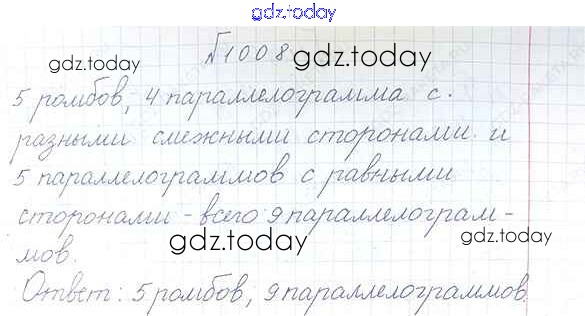 gdz.today
№1008
gdz.today gdz.today
5 ромбов, 4 параллелограмма с
разными смежными сторонами и
5 параллелограммов с равными
сторонами - всего 9 параллелограм-
gdz.today gdz.today
мов.
Ответ: 5 ромбов, 9 параллелограммов
gdz.today